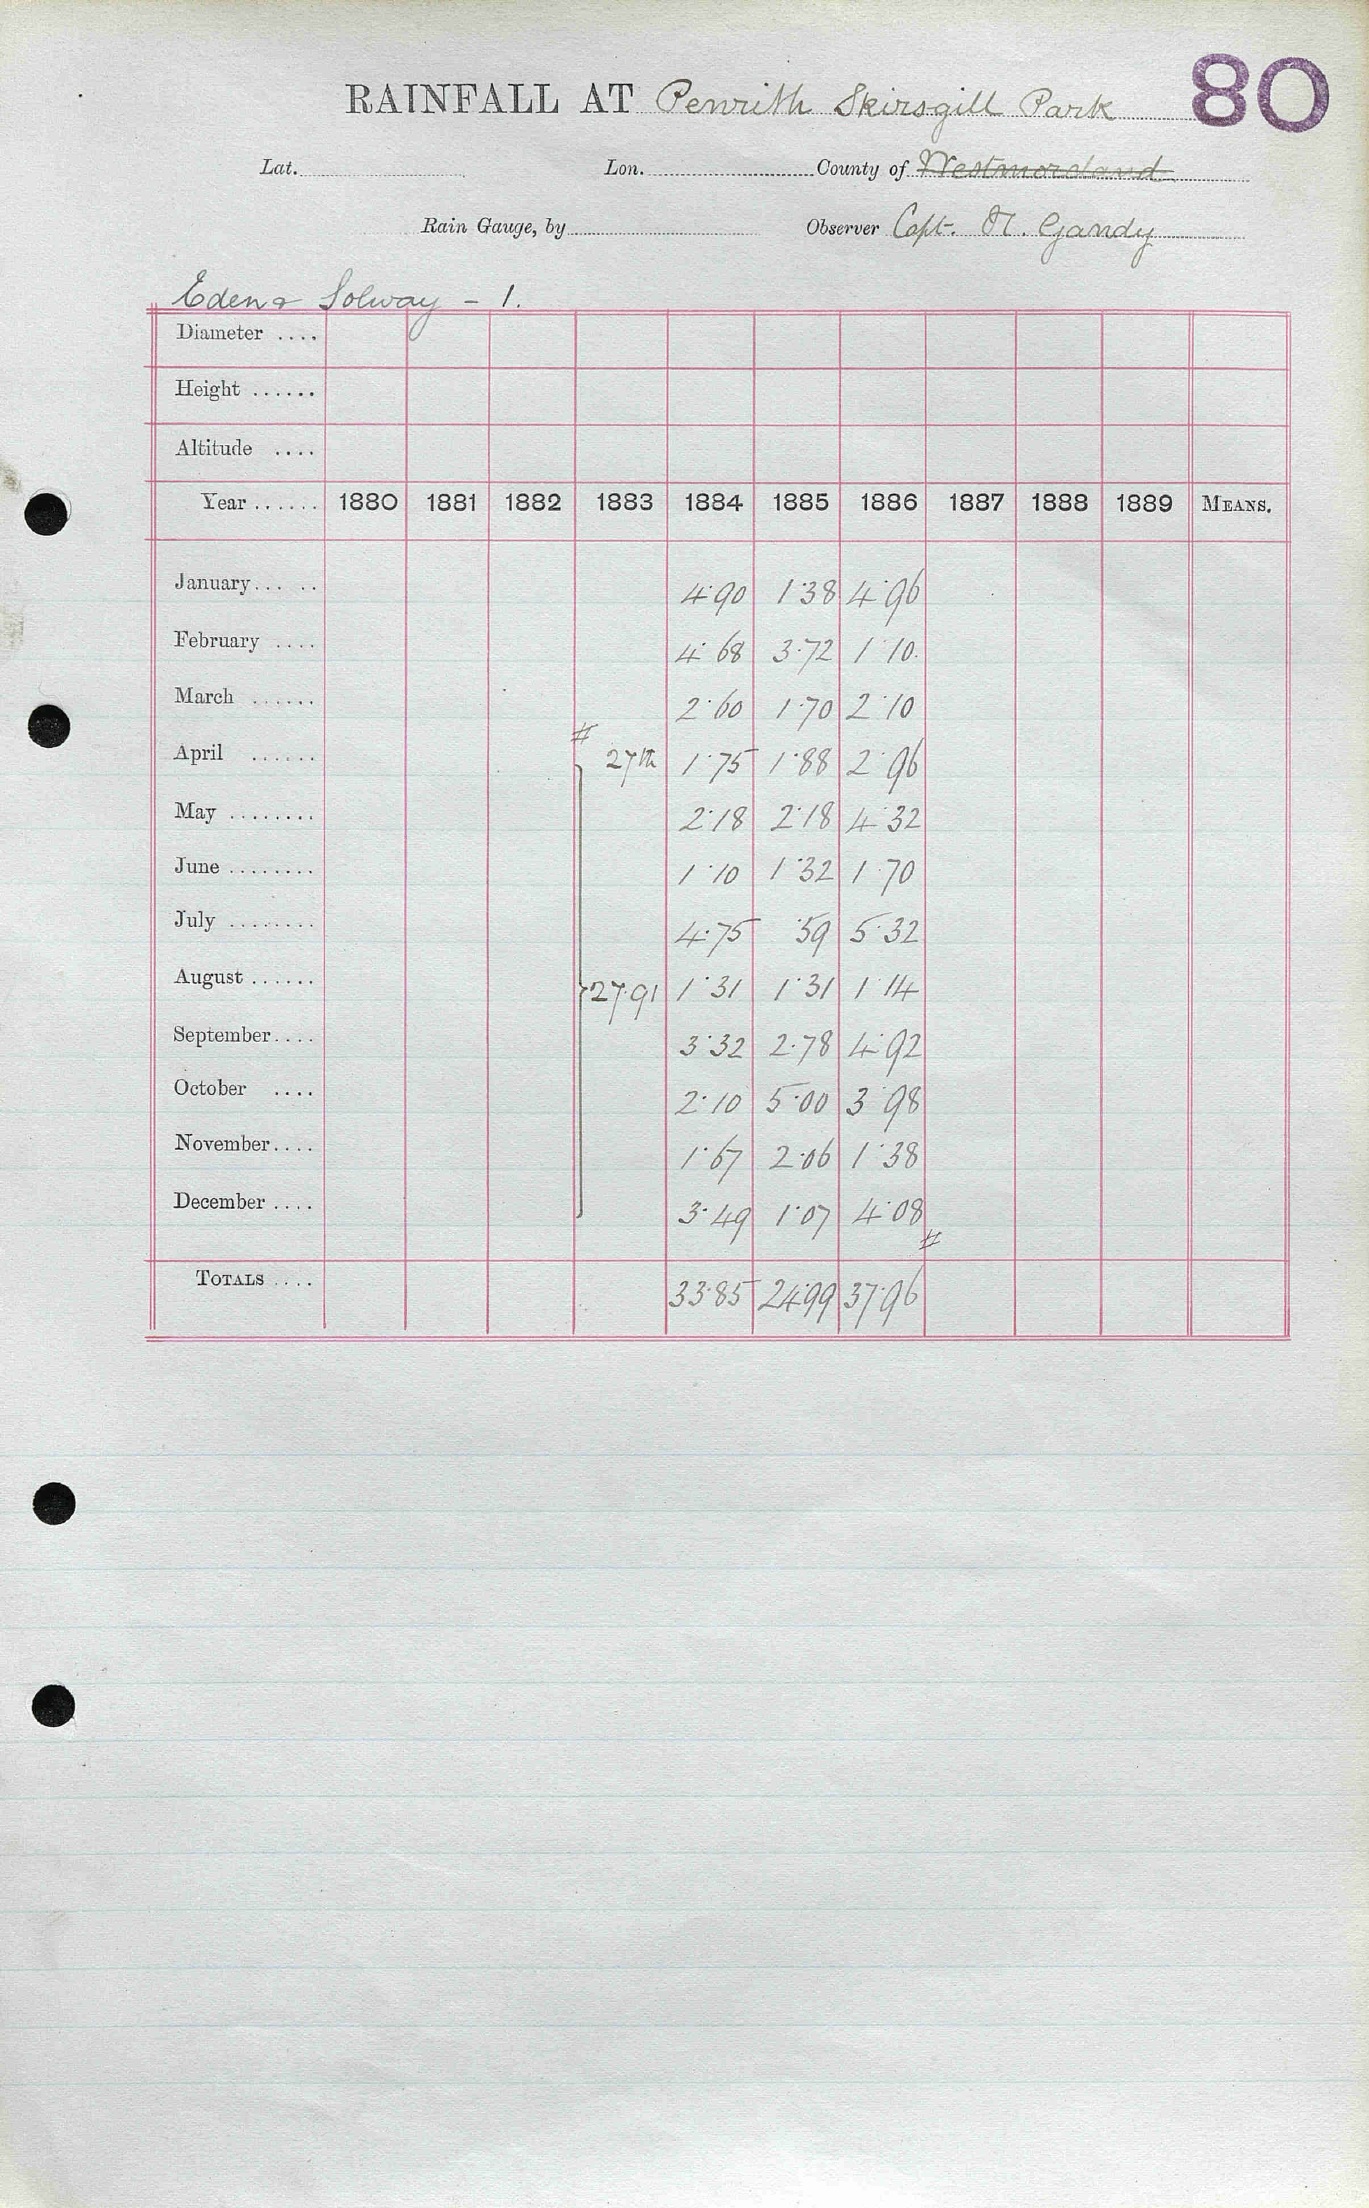 80
RAINFALL AT Penrith Skirsgill Park
Lat. Lon. County of Westmorland
Rain Gauge, by Observer Capt. H. Gandy
Eden & Solway - 1.
Diameter ....
Height ......
Altitude ....
Year ...... 1880 1881 1882 1883 1884 1885 1886 1887 1888 1889 MEANS.
January ... .. 4·90 1·38 4·96
February .... 4·68 3·72 1·10
March ...... 2·60 1·70 2·10
#
April ...... 27th 1·75 1·88 2·96
May ........ 2·18 2·18 4·32
June ........ 1·10 1·32 1·70
July ........ 4·75 ·59 5·32
August ...... 27·91 1·31 1·31 1·14
September .... 3·32 2·78 4·92
October .... 2·10 5·00 3·98
November .... 1·67 2·06 1·38
December .... 3·49 1·07 4·08
#
TOTALS .... 33·85 24·99 37·96